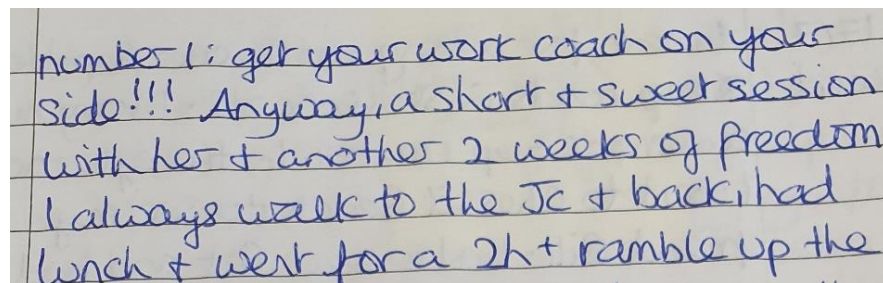 number 1: get your work coach on your
side!!! Anyway, a short + sweet session
with her + another 2 weeks of freedom
I always walk to the Jc + back, had
lunch + went for a 2h+ ramble up the